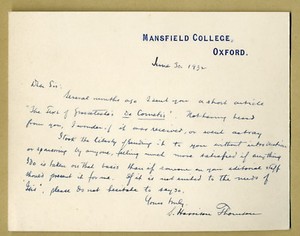 MANSFIELD COLLEGE,
OXFORD.
June 30 1932
Dear Sir:
Several months ago I sent you a short article
"The Text of Grosseteste's De Cometis". Not having heard
from you, I wonder if it was received, or went astray.
I took the liberty of sending it to you without introduction
or sponsoring by anyone, feeling much more satisfied if anything
I do is taken on that basis than if someone on your editorial staff
should present it for me. If it is not suited to the needs of
"Isis", please do not hesitate to say so.
Yours truly,
S. Harrison Thomson